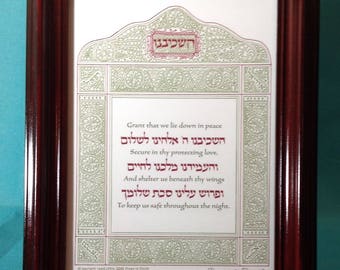 השכיבנו
Grant that we lie down in peace
השכיבנו ה' אלהינו לשלום
Secure in thy protecting love,
והעמידנו מלכנו לחיים
And shelter us beneath thy wings
ופרוש עלינו סכת שלומך
To keep us safe throughout the night.